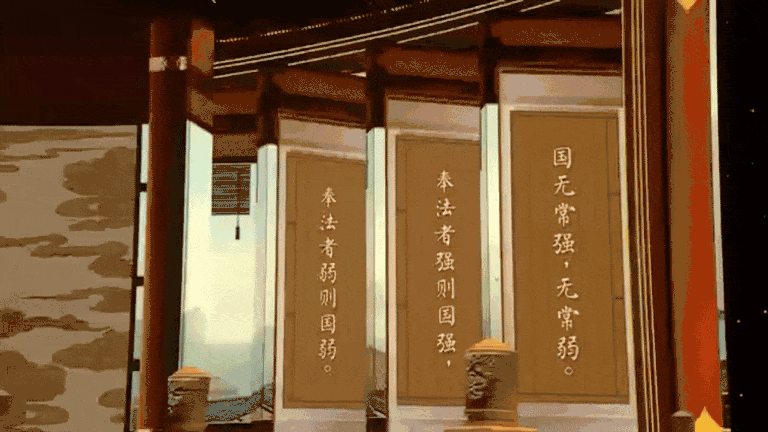 国无常强，无常弱。
奉法者强则国强，
奉法者弱则国弱。